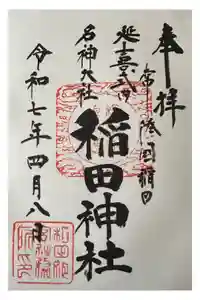 奉拝
常陸國稲田
延喜式内
名神大社
稲田神社
令和七年四月八日